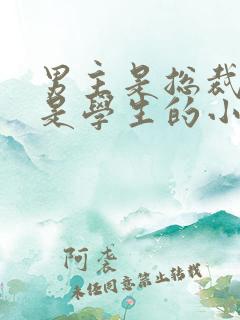 男主是总裁
是学生的小
阿袭
未经同意禁止转载